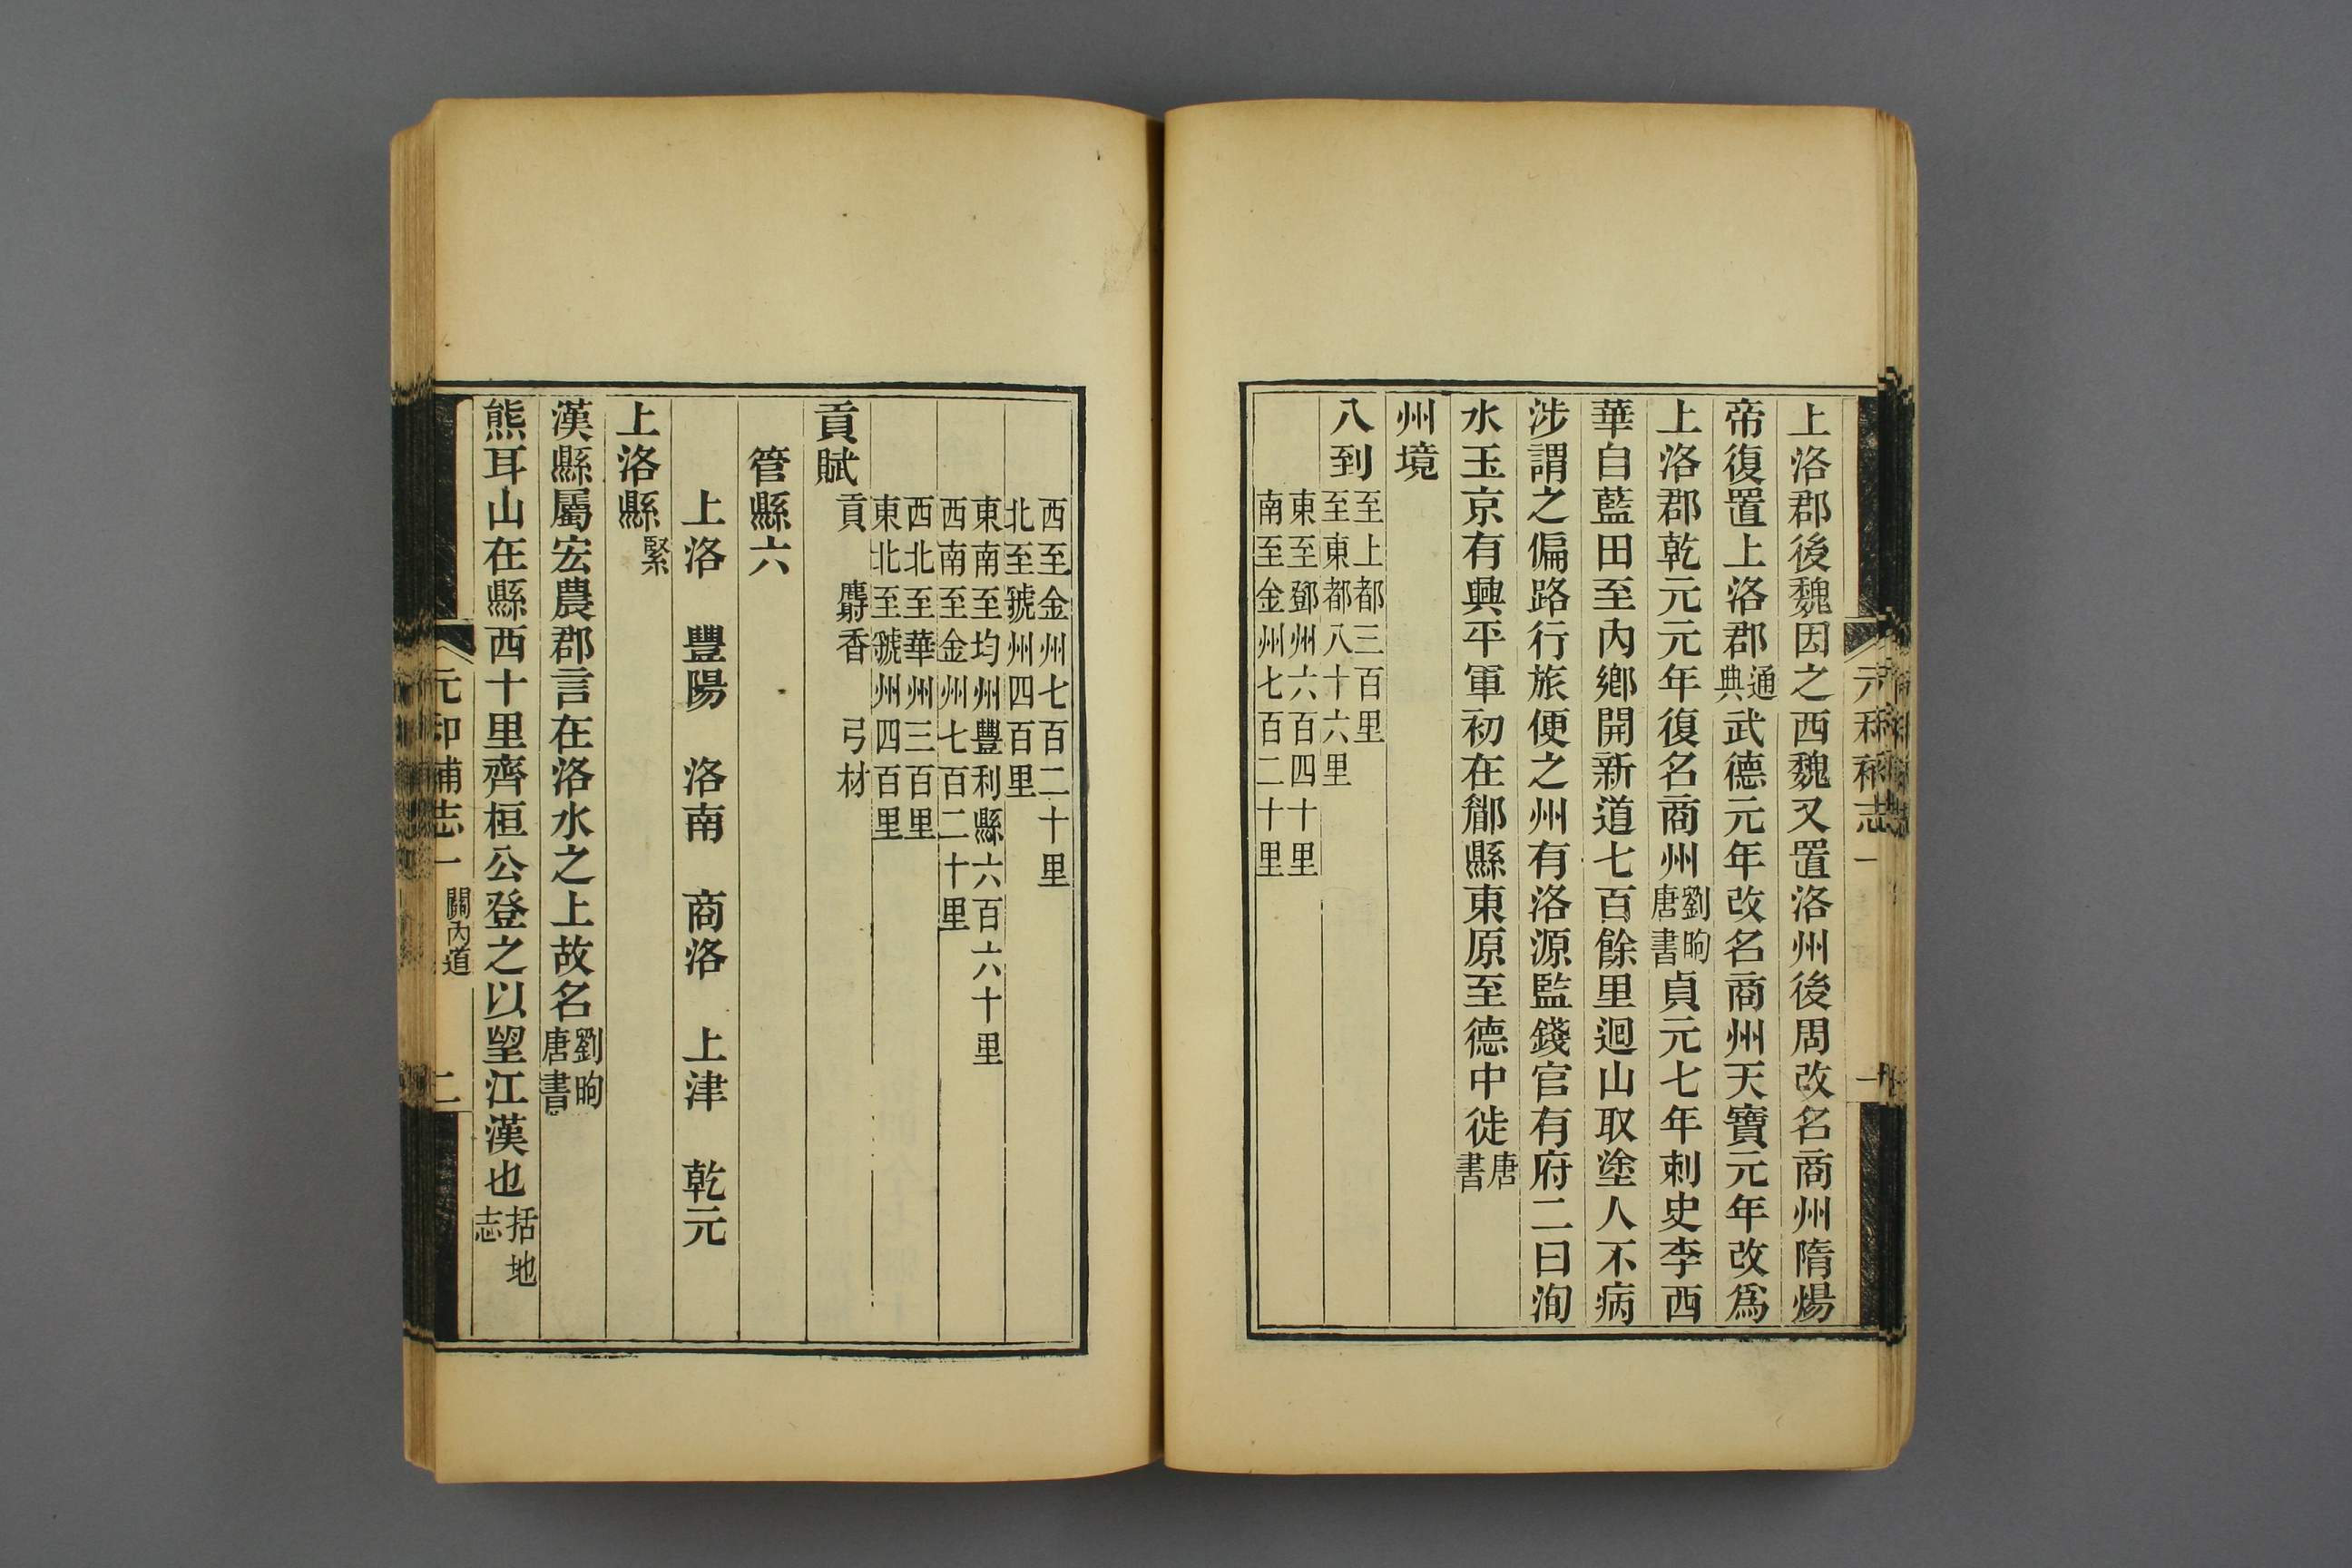 上洛郡後魏因之西魏又置洛州後周改名商州隋煬
帝復置上洛郡通典武德元年改名商州天寶元年改爲
上洛郡乾元元年復名商州劉昫唐書貞元七年刺史李西
華自藍田至內鄉開新道七百餘里迴山取塗人不病
涉謂之偏路行旅便之州有洛源監錢官有府二曰洵
水玉京有興平軍初在鄜縣東原至德中徙唐書
州境
八到至上都三百里
至東都八十六里
東至鄧州六百四十里
南至金州七百二十里
西至金州七百二十里
北至虢州四百里
東南至均州豐利縣六百六十里
西南至金州七百二十里
西北至華州三百里
東北至虢州四百里
貢賦貢 麝香 弓材
管縣六
上洛 豐陽 洛南 商洛 上津 乾元
上洛縣緊
漢縣屬宏農郡言在洛水之上故名劉昫唐書
熊耳山在縣西十里齊桓公登之以望江漢也括地志
志一 關內道 二